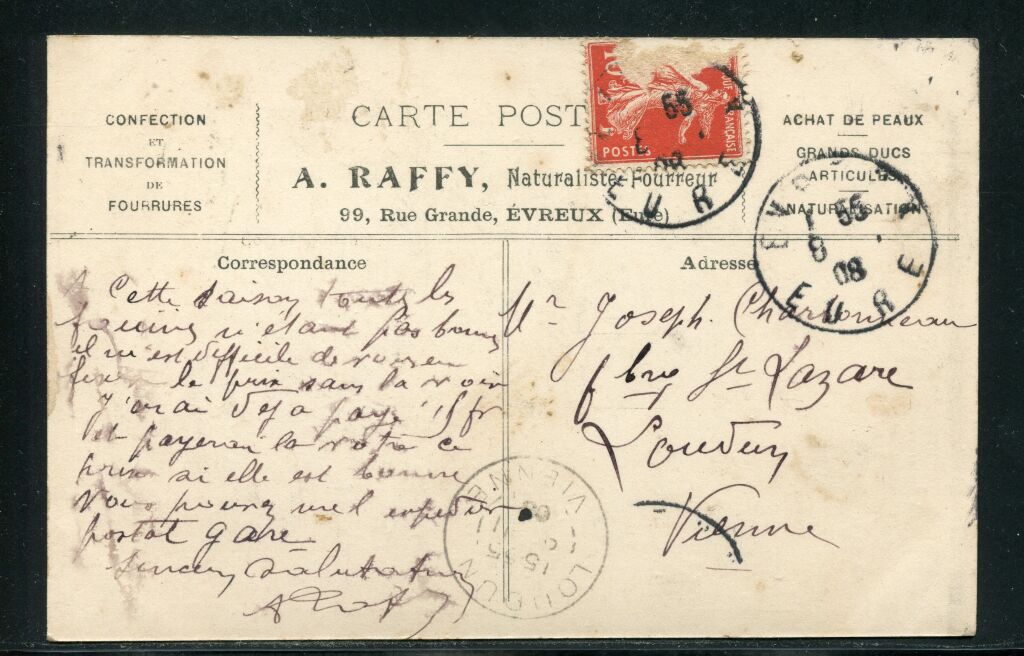 CONFECTION
ET
TRANSFORMATION
DE
FOURRURES
CARTE POST
A. RAFFY, Naturaliste-Fourreur
99, Rue Grande, ÉVREUX (Eure)
10
POSTES
FRANÇAISE
55
EURE
ACHAT DE PEAUX
GRANDS DUCS
ARTICULES
NATURALISATION
55
8
08
EURE
Correspondance
Cette saison toutes les
fouines n'étant pas bonnes
il m'est difficile de vous en
le prix sans la voir
J'en ai déjà payé 15 fr
et payerai la votre ce
prix si elle est bonne
Vous pouvez me l'expédier
postal gare
Salutations
Adresse
Mr Joseph Charbonneau
fbrg St Lazare
Loudun
Vienne
LOUDUN
VIENNE
15